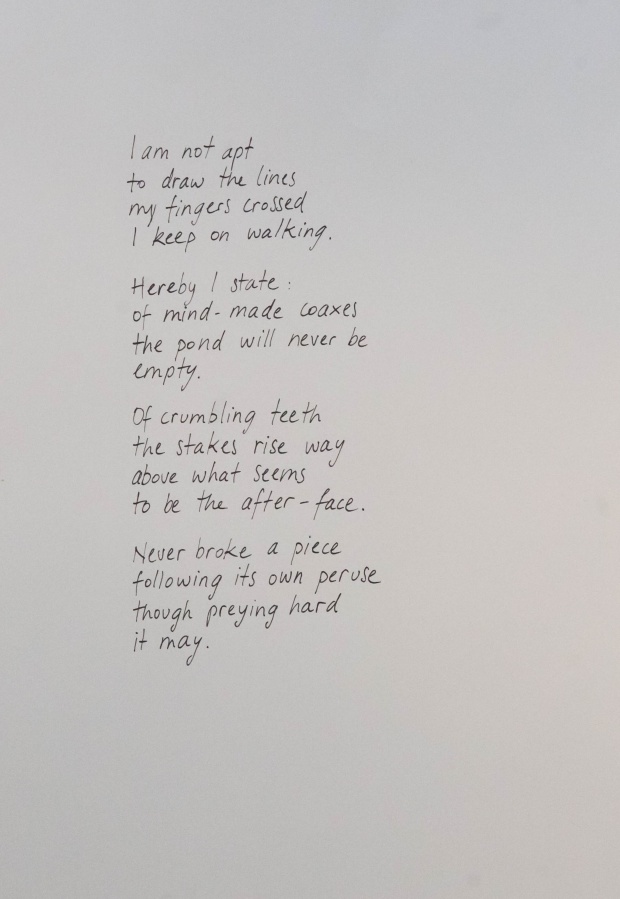 I am not apt
to draw the lines
my fingers crossed
I keep on walking.
Hereby I state:
of mind-made coaxes
the pond will never be
empty.
Of crumbling teeth
the stakes rise way
above what seems
to be the after-face.
Never broke a piece
following its own peruse
though preying hard
it may.